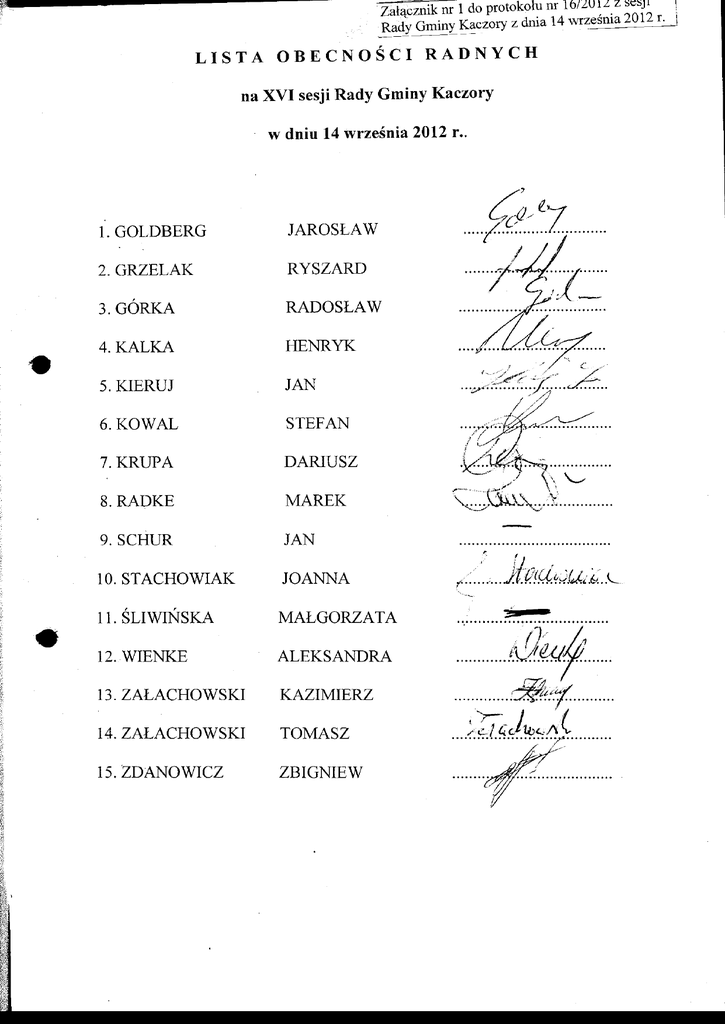 Załącznik nr 1 do protokołu nr 16/2012 z sesji
Rady Gminy Kaczory z dnia 14 września 2012 r.
LISTA OBECNOŚCI RADNYCH
na XVI sesji Rady Gminy Kaczory
w dniu 14 września 2012 r..
1. GOLDBERG JAROSŁAW
2. GRZELAK RYSZARD
3. GÓRKA RADOSŁAW
4. KALKA HENRYK
5. KIERUJ JAN
6. KOWAL STEFAN
7. KRUPA DARIUSZ
8. RADKE MAREK
9. SCHUR JAN —
10. STACHOWIAK JOANNA Stachowiak
11. ŚLIWIŃSKA MAŁGORZATA —
12. WIENKE ALEKSANDRA Wienke
13. ZAŁACHOWSKI KAZIMIERZ
14. ZAŁACHOWSKI TOMASZ
15. ZDANOWICZ ZBIGNIEW